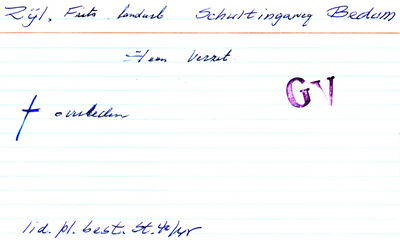 Zijl, Frits landarb Schultingaweg Bedum
Geen Verzet
GV
overleden
lid. pl. best. St. 40/45